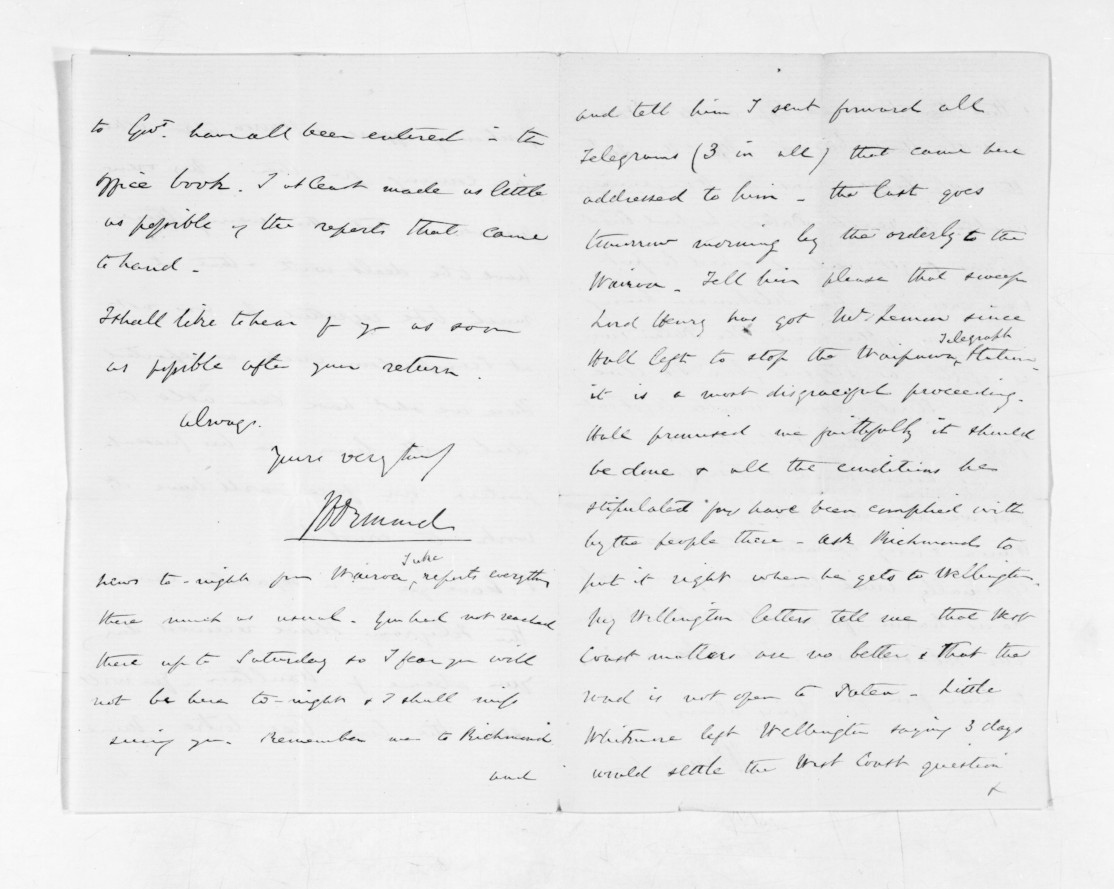 to Govt. have all been entered in the
office book. I at least made as little
as possible of the reports that came
to hand -
I shall like to hear of you as soon
as possible after your return.
Always.
Yours very truly
JD Ormond
news to-night from Wairoa,
Tuke
reports everything
there much as usual. You had not reached
there up to Saturday so I fear you will
not be here to-night & I shall miss
seeing you. Remember me to Richmond
and
and tell him I sent forward all
Telegrams (3 in all) that came here
addressed to him - the last goes
tomorrow morning by the orderly to the
Wairoa - Tell him please that sweep
Lord Henry has got Mr Lemon since
Telegraph
Hall left to stop the Waipawa, Station -
it is a most disgraceful proceeding.
Hall promised me faithfully it should
be done & all the conditions he
stipulated for have been complied with
by the people there - ask Richmond to
put it right when he gets to Wellington.
My Wellington letters tell me that West
Coast matters are no better & that the
road is not open to Patea - Little
Whitmore left Wellington saying 3 days
would settle the West Coast question